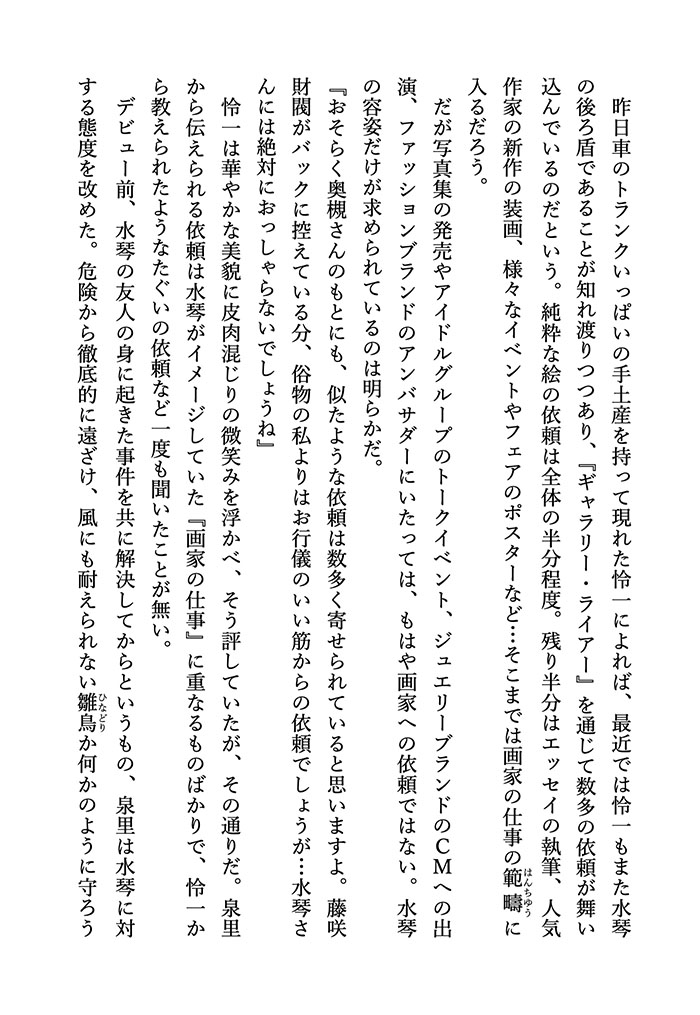 昨日車のトランクいっぱいの手土産を持って現れた怜一によれば、最近では怜一もまた水琴
の後ろ盾であることが知れ渡りつつあり、『ギャラリー・ライアー』を通じて数多の依頼が舞い
込んでいるのだという。純粋な絵の依頼は全体の半分程度。残り半分はエッセイの執筆、人気
作家の新作の装画、様々なイベントやフェアのポスターなど…そこまでは画家の仕事の範疇はんちゆうに
入るだろう。
　だが写真集の発売やアイドルグループのトークイベント、ジュエリーブランドのＣＭへの出
演、ファッションブランドのアンバサダーにいたっては、もはや画家への依頼ではない。水琴
の容姿だけが求められているのは明らかだ。
『おそらく奥槻さんのもとにも、似たような依頼は数多く寄せられていると思いますよ。藤咲
財閥がバックに控えている分、俗物の私よりはお行儀のいい筋からの依頼でしょうが…水琴さ
んには絶対におっしゃらないでしょうね』
　怜一は華やかな美貌に皮肉混じりの微笑みを浮かべ、そう評していたが、その通りだ。泉里
から伝えられる依頼は水琴がイメージしていた『画家の仕事』に重なるものばかりで、怜一か
ら教えられたようなたぐいの依頼など一度も聞いたことが無い。
　デビュー前、水琴の友人の身に起きた事件を共に解決してからというもの、泉里は水琴に対
する態度を改めた。危険から徹底的に遠ざけ、風にも耐えられない雛鳥ひなどりか何かのように守ろう